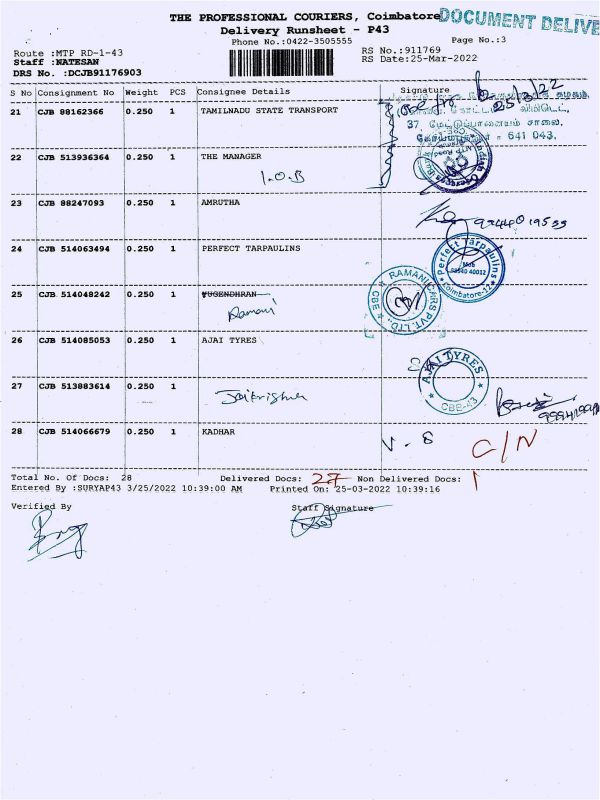 THE PROFESSIONAL COURIERS, Coimbatore
DOCUMENT DELIVE
Delivery Runsheet - P43
Phone No.:0422-3505555
Page No.:3
Route :MTP RD-1-43
RS No.:911769
Staff :NATESAN
RS Date:25-Mar-2022
DRS No. :DCJB91176903
S No Consignment No Weight PCS Consignee Details Signature
25/3/22
21 CJB 88162366 0.250 1 TAMILNADU STATE TRANSPORT
லிமிடெட்,
37 மேட்டுப்பாளையம் சாலை,
641 043.
22 CJB 513936364 0.250 1 THE MANAGER
I.O.B
23 CJB 88247093 0.250 1 AMRUTHA
24 CJB 514063494 0.250 1 PERFECT TARPAULINS
Perfect Tarpaulins
Mob
Coimbatore-12
25 CJB 514048242 0.250 1 YUGENDHRAN
Ramani
RAMANI CARS PVT. LTD., CBE
26 CJB 514085053 0.250 1 AJAI TYRES
AJAI TYRES
CBE-43
27 CJB 513883614 0.250 1
Jaikrishna
28 CJB 514066679 0.250 1 KADHAR
V. S
C/N
Total No. Of Docs: 28 Delivered Docs: 27 Non Delivered Docs: 1
Entered By :SURYAP43 3/25/2022 10:39:00 AM Printed On: 25-03-2022 10:39:16
Verified By Staff Signature